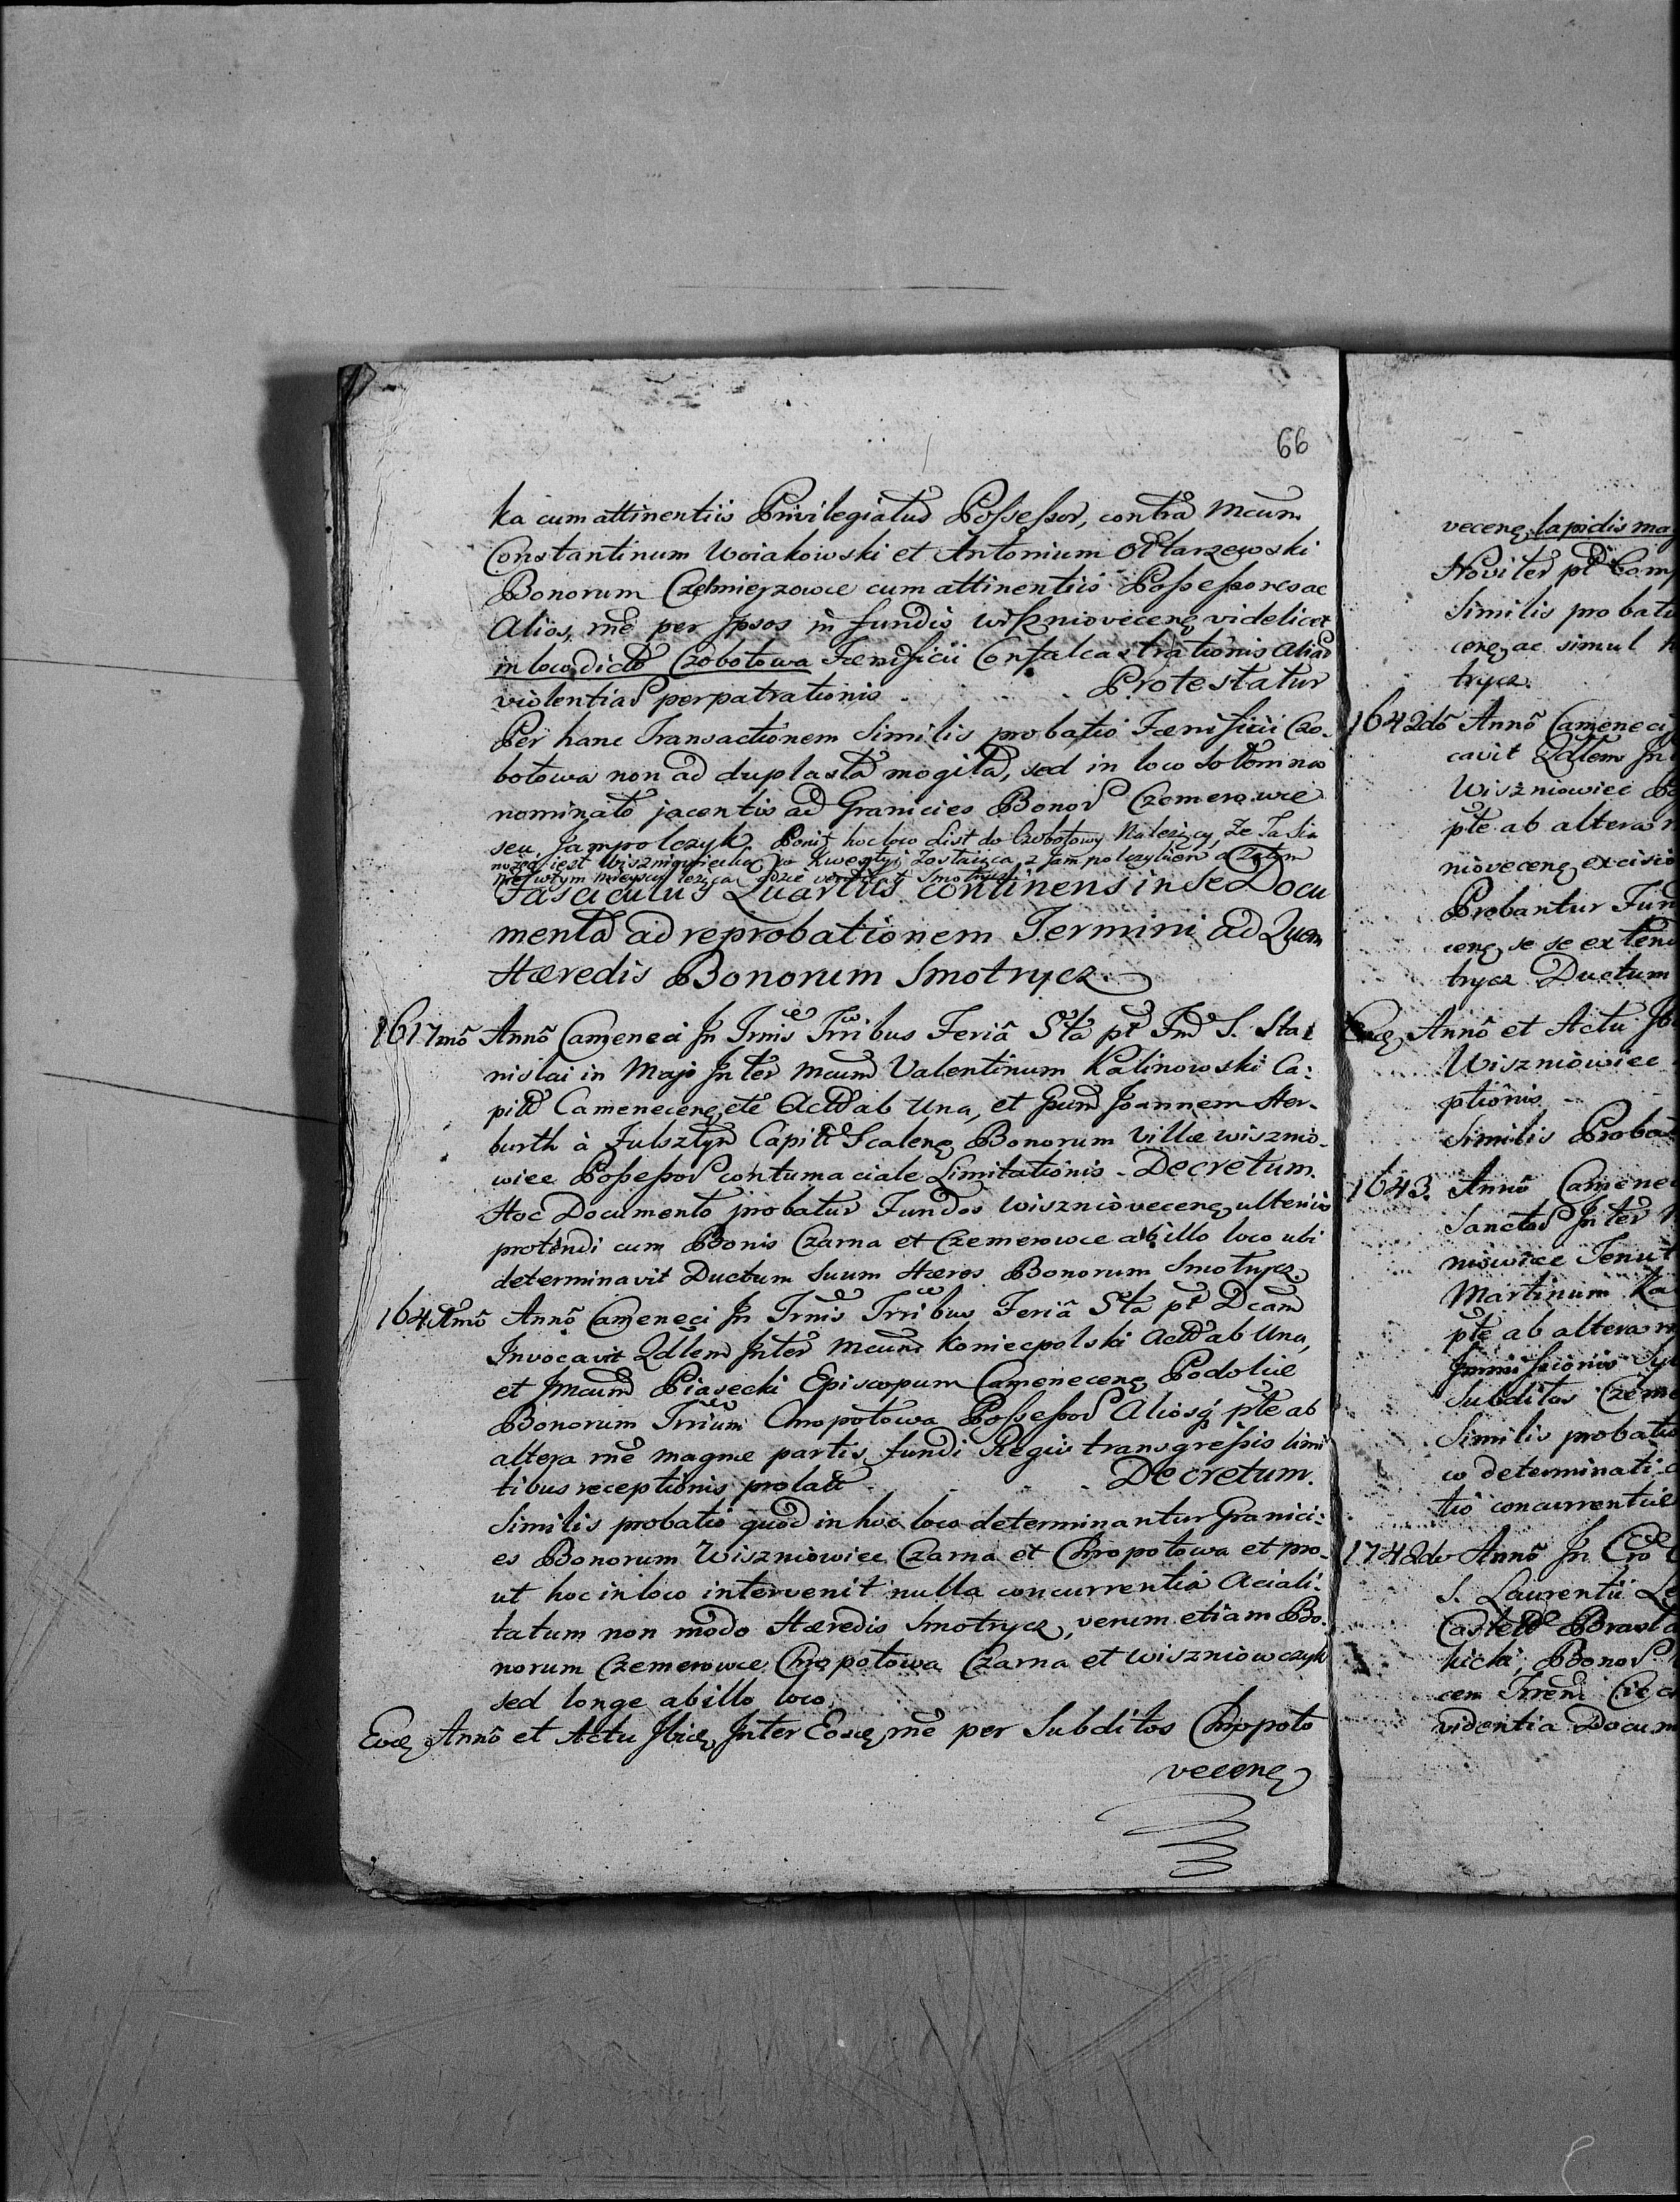 66
ka cum attinentiis Privilegiatus Possessor, contra Mcum
Constantinum Woiakowski et Antonium Ołtarzewski
Bonorum Czemierzowce cum attinentiis Possessores ac
Alios, rñe per Ipsos in fundis Wiszniovecenę videlicet
in loco dicto Czobotowa Fænificii Confalcastrationis alias
violentias perpatrationis Protestatur
Per hanc Transactionem Similis probatio Fænificii Czo-
botowa non ad duplasta mogiła, sed in loco Sołomna
nominato jacentis ad Granicies Bonor Czemerowce
seu Jampolczyk Ponit hoc loco List do Czobotowy Należący, Ze Ta Sia
nożęć jest Wiszniowiecka, w Kwestyi Zostaiąca z Jampolczykiem a Zatym
nie w tym mieyscu leżąca gdzie Smotrycz
Fasciculus Quartus continens in Se Docu
menta ad reprobationem Termini ad Quem
Hæredis Bonorum Smotrycz
1617mô Annô Cameneci In Trnis Trribus Feriâ Sta pt Fm S. Sta-
nislai in Majo Inter Mcum Valentinum Kalinowski Ca:
pitt Camenecenę etc Act ab Una, et Joannem Her-
burth à Fulsztyn Capitt Scalenę Bonorum Villæ Wisznio-
wiec Possessor contumaciale Limitationis - Decretum.
Hoc Documento probatur Fundos Wiszniovecenę ulterius
protendi cum Bonis Czarna et Czemerowce ab illo loco ubi
determinavit Ductum Suum Hæres Bonorum Smotrycz
1641mô Annô Cameneci In Trnis Trribus Feriâ Sta pt Dcam
Invocavit Qdlem Inter Mcum Koniecpolski Act ab Una,
et Piasecki Episcopum Camenecenę Podoliæ
Bonorum Trrium Chropotowa Possessor Aliosq pte ab
altera rñe magnæ partis fundi Regii transgressis limi
tibus receptionis prolatt Decretum.
Similis probatio quod in hoc loco determinantur Granici:
es Bonorum Wiszniowiec Czarna et Chropotowa et pro-
ut hoc in loco intervenit nulla concurrentia Aciali:
tatum non modo Hæredis Smotrycz, verum etiam Bo:
norum Czemerowce Chropotowa Czarna et Wiszniowczyk
sed longe ab illo loco.
Eoę Annô et Actu Ibię Inter Eosę rñe per Subditos Chropoto
vecenę
vecenę lapidis ma
Noviter pt Com
Similis probati
cenę ac simul
trycz.
1642dô Annô Cameneci
cavit Qdlem In
Wiszniowiec Bo
pte ab altera r
niovecenę excisio
Probantur Fun
cenę se se exten
trycz Ductum
Eoę Annô et Actu Ib
Wiszniowiec
ptionis
Similis Proba
1643. Annô Camene
Sanctor Inter
niowiec Tenut
Martinum Ka
pte ab altera r
Subditos Czeme
Similis probatio
co determinati
tio concurrentiæ
1742do Annô In
S. Laurentii
Castell Bracla
hicki, Bonor
cem Trrem
videntia Docum